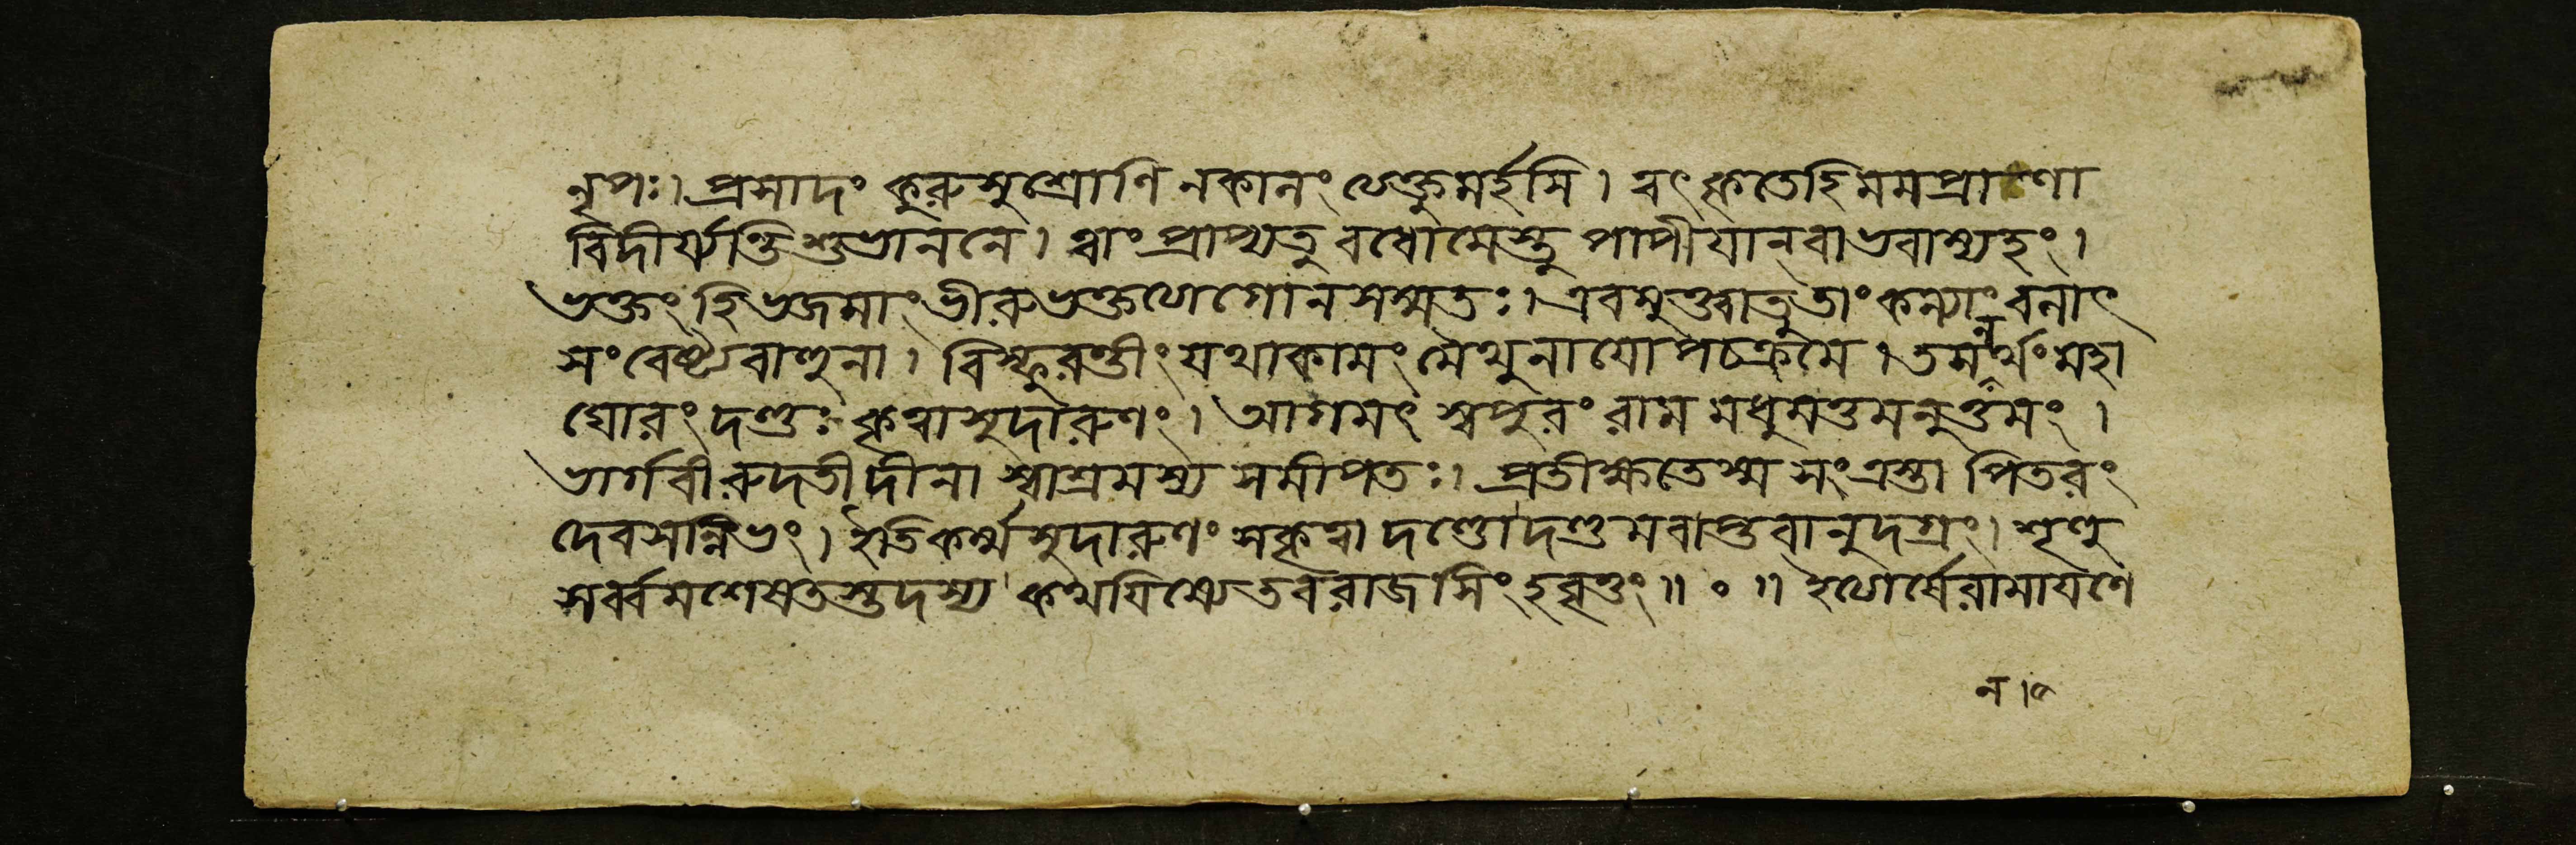 নৃপঃ। প্রসাদং কুরু সুশ্রোণি নকালং ক্ষেপ্তুমর্হসি। ত্বৎকৃতেহি মম প্রাণা
বিদীর্য্যন্তি শুভাননে। ত্বাং প্রাপ্যতু বধোমেস্তু পাপীযানবাভবাম্যহং।
ভক্তং হি ভজমাং ভীরু ভক্তত্যাগোনসম্মতঃ। এবমুক্ত্বাতুতাং কন্যাং বনাৎ
সংবেষ্ট্যবাহুনা। বিস্ফুরন্তীং যথাকামং মৈথুনাযোপচক্রমে। তমনর্থং মহা
ঘোরং দণ্ডঃ কৃত্বাসুদারুণং। আগমৎ স্বপুরং রাম মধুমন্তমনুত্তমং।
ভার্গবীরুদতীদীনা স্বাশ্রমস্য সমীপতঃ। প্রতীক্ষতেস্ম সংত্রস্তা পিতরং
দেবসন্নিভং। ইতি কর্ম্ম সুদারুণং সকৃত্বা দণ্ডোদণ্ডমবাপ্তবানুদগ্রং। শৃণু
সর্ব্বমশেষতস্তদস্য কথযিষ্যেতবরাজসিংহবৃত্তং॥ ০ ॥ ইত্যার্ষেরামাযণে